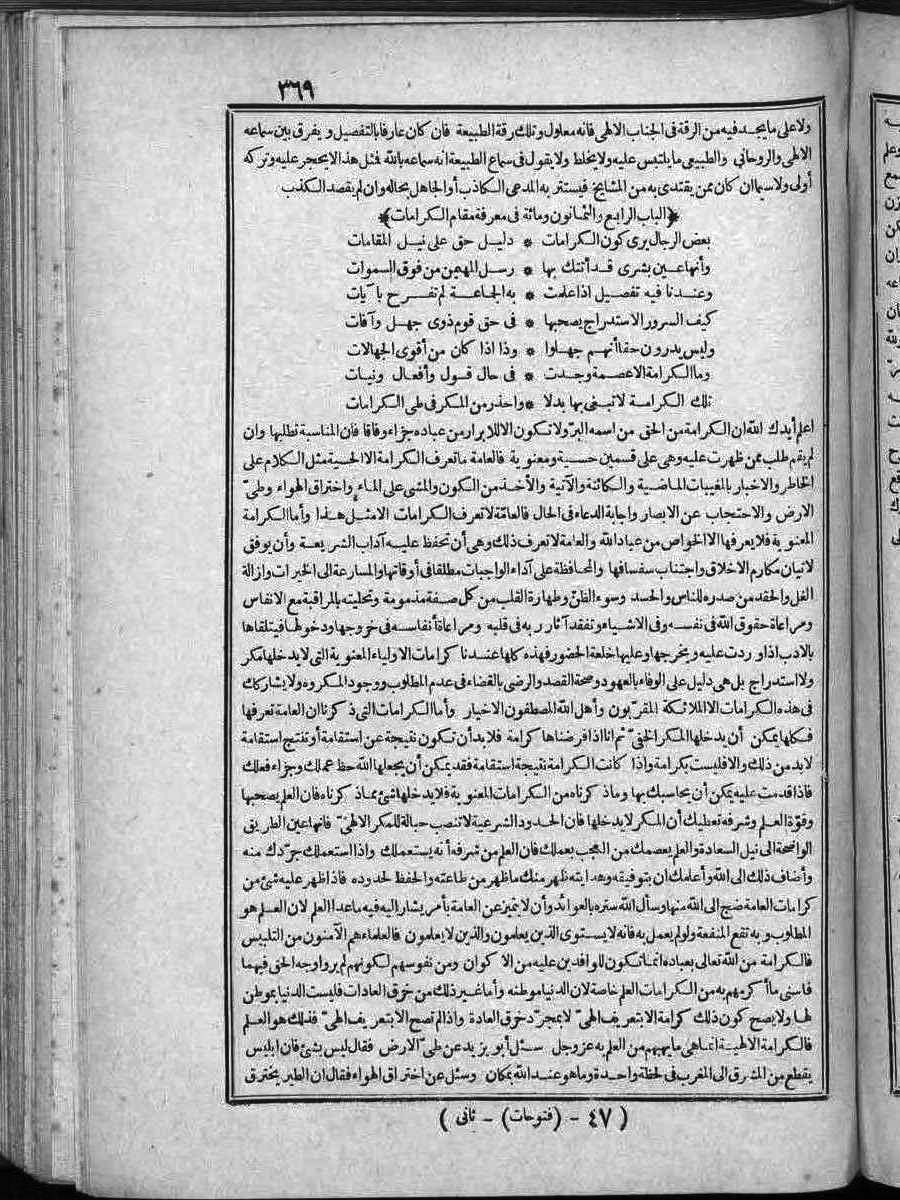 ٣٦٩
ولا على ما يجد فيه من الرقة فى الجناب الالهى فانه معلول وتلك رقة الطبيعة فان كان عارفا بالتفصيل ويفرق بين سماعه
الالهى والروحانى والطبيعى ما يلتبس عليه ولا يخلط ولا يقول فى سماع الطبيعة انه سماعه بالله فمثل هذا لا يحجر عليه وتركه
أولى ولا سيما ان كان ممن يقتدى به من المشايخ فيستتر به المدعى الكاذب أو الجاهل بحاله وان لم يقصد الكذب
﴿الباب الرابع والثمانون ومائة فى معرفة مقام الكرامات﴾
بعض الرجال يرى كون الكرامات * دليل حق على نيل المقامات
وأنها عين بشرى قد أتتك بها * رسل المهيمن من فوق السموات
وعندنا فيه تفصيل اذا علمت * به الجماعة لم تفرح بآيات
كيف السرور والاستدراج يصحبها * فى حق قوم ذوى جهل وآفات
وليس يدرون حقا أنهم جهلوا * وذا اذا كان من أقوى الجهالات
وما الكرامة الا عصمة وجدت * فى حال قول وأفعال ونيات
تلك الكرامة لا تبغى بها بدلا * واحذر من المكر فى طى الكرامات
اعلم أيدك الله ان الكرامة من الحق من اسمه البرّ ولا تكون الا للابرار من عباده جزاء وفاقا فان المناسبة تطلبها وان
لم يقم طلب ممن ظهرت عليه وهى على قسمين حسية ومعنوية فالعامة ما تعرف الكرامة الا الحسية مثل الكلام على
الخاطر والاخبار بالمغيبات الماضية والكائنة والآتية والأخذ من الكون والمشى على الماء واختراق الهواء وطىّ
الارض والاحتجاب عن الابصار واجابة الدعاء فى الحال فالعامّة لا تعرف الكرامات الا مثل هذا وأما الكرامة
المعنوية فلا يعرفها الا الخواص من عباد الله والعامة لا تعرف ذلك وهى أن تحفظ عليه آداب الشريعة وأن يوفق
لاتيان مكارم الاخلاق واجتناب سفسافها والمحافظة على أداء الواجبات مطلقا فى أوقاتها والمسارعة الى الخيرات وازالة
الغل والحقد من صدره للناس والحسد وسوء الظنّ وطهارة القلب من كل صفة مذمومة وتحليته بالمراقبة مع الانفاس
ومراعاة حقوق الله فى نفسه وفى الاشياء وتفقد آثار ربه فى قلبه ومراعاة أنفاسه فى خروجها ودخولها فيتلقاها
بالادب اذا وردت عليه ويخرجها وعليها خلعة الحضور فهذه كلها عندنا كرامات الاولياء المعنوية التى لا يدخلها مكر
ولا استدراج بل هى دليل على الوفاء بالعهود وصحة القصد والرضى بالقضاء فى عدم المطلوب ووجود المكروه ولا يشاركك
فى هذه الكرامات الا الملائكة المقرّبون وأهل الله المصطفون الاخيار وأما الكرامات التى ذكرنا ان العامة تعرفها
فكلها يمكن أن يدخلها المكر الخفىّ ثم انا اذا فرضناها كرامة فلا بد أن تكون نتيجة عن استقامة أو تنتج استقامة
لا بد من ذلك والا فليست بكرامة واذا كانت الكرامة نتيجة استقامة فقد يمكن أن يجعلها الله حظ عملك وجزاء فعلك
فاذا قدمت عليه يمكن أن يحاسبك بها وما ذكرناه من الكرامات المعنوية فلا يدخلها شئ مما ذكرناه فان العلم يصحبها
وقوّة العلم وشرفه تعطيك أن المكر لا يدخلها فان الحدود الشرعية لا تنصب حبالة للمكر الالهىّ فانها عين الطريق
الواضحة الى نيل السعادة والعلم يعصمك من العجب بعملك فان العلم من شرفه أنه يستعملك واذا استعملك جرّدك منه
وأضاف ذلك الى الله وأعلمك ان بتوفيقه وهدايته ظهر منك ما ظهر من طاعته والحفظ لحدوده فاذا ظهر عليه شئ من
كرامات العامة ضج الى الله منها وسأل الله ستره بالعوائد وأن لا يتميز عن العامة بأمر يشار اليه فيه ما عدا العلم لان العلم هو
المطلوب وبه تقع المنفعة ولو لم يعمل به فانه لا يستوى الذين يعلمون والذين لا يعلمون فالعلماء هم الآمنون من التلبيس
فالكرامة من الله تعالى بعباده انما تكون للوافدين عليه من الاكوان ومن نفوسهم لكونهم لم يروا وجه الحق فيهما
فاسنى ما أكرمهم به من الكرامات العلم خاصة لان الدنيا موطنه وأما غير ذلك من خرق العادات فليست الدنيا بموطن
لها ولا يصح كون ذلك كرامة الا بتعريف الهىّ لا بمجرّد خرق العادة واذا لم تصح الا بتعريف الهىّ فذلك هو العلم
فالكرامة الالهية انما هى ما يهبهم من العلم به عز وجل سئل أبو يزيد عن طىّ الارض فقال ليس بشئ فان ابليس
يقطع من المشرق الى المغرب فى لحظة واحدة وما هو عند الله بمكان وسئل عن اختراق الهواء فقال ان الطير يخترق
( ٤٧ - (فتوحات) - ثانى )